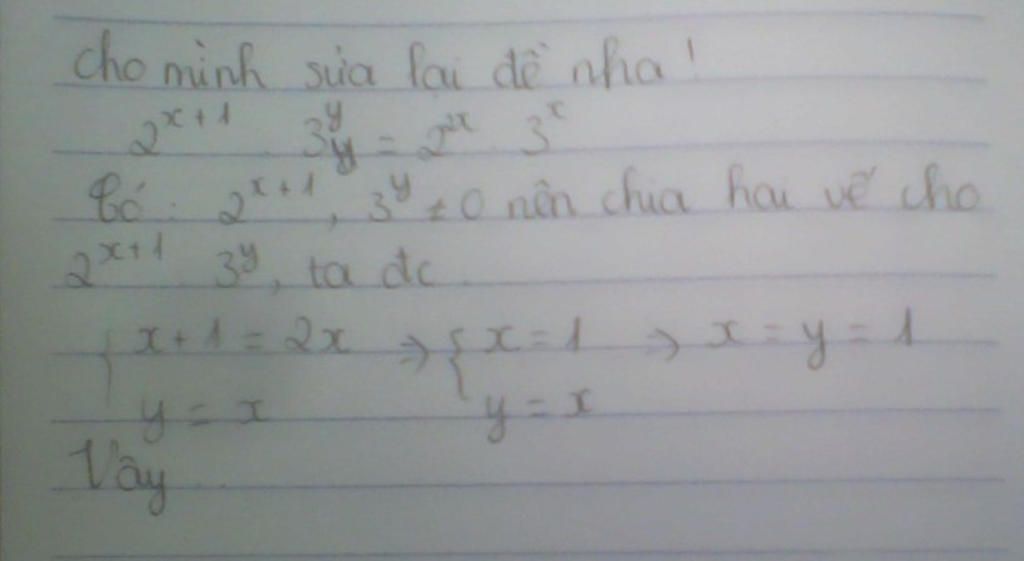 cho mình sửa lại đề nha!
2^{x+1} . 3^y = 2^{2x} . 3^x
Có: 2^{x+1}, 3^y ≠ 0 nên chia hai vế cho
2^{x+1} 3^y, ta đc
{ x+1 = 2x ⇒ { x = 1 ⇒ x = y = 1
y = x y = x
Vậy ...